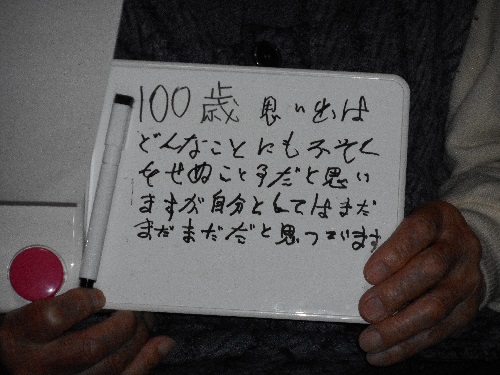 100歳 思い出は
どんなことにもふそく
をせぬことうだと思い
ますが自分としてはまだ
まだまだだと思つています